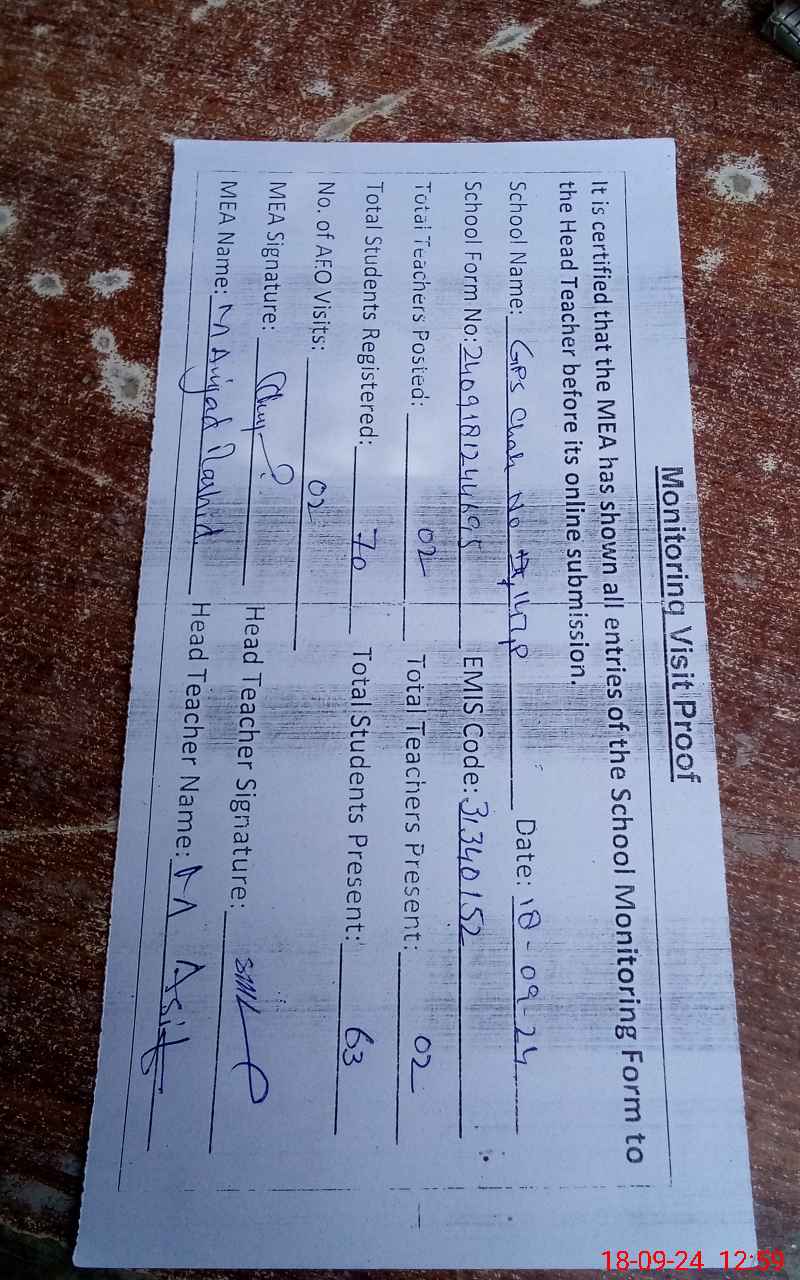 Monitoring Visit Proof
It is certified that the MEA has shown all entries of the School Monitoring Form to
the Head Teacher before its online submission.
School Name: GPS Chak No 147P Date: 18-09-24
School Form No: 2409181244695 EMIS Code: 31340152
Total Teachers Posted: 02 Total Teachers Present: 02
Total Students Registered: 70 Total Students Present: 63
No. of AEO Visits: 02
MEA Signature: Head Teacher Signature:
MEA Name: M Amjad Rashid Head Teacher Name: M Asif
18-09-24 12:59